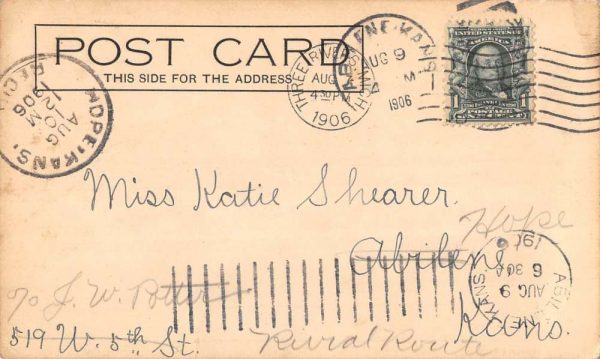 POST CARD
THIS SIDE FOR THE ADDRESS
THREE RIVERS, MICH
AUG
4 30 PM
1906
ABILENE, KANS.
AUG 9
M
1906
HOPE, KANS.
AUG
10
M
1906
REC'D
1
Miss Katie Shearer.
Hope
Abilene
ABILENE KANS.
AUG 9
6 30 A
1906
Kans.
c/o J. W. Botter
519 W. 5th St.
Rural Route